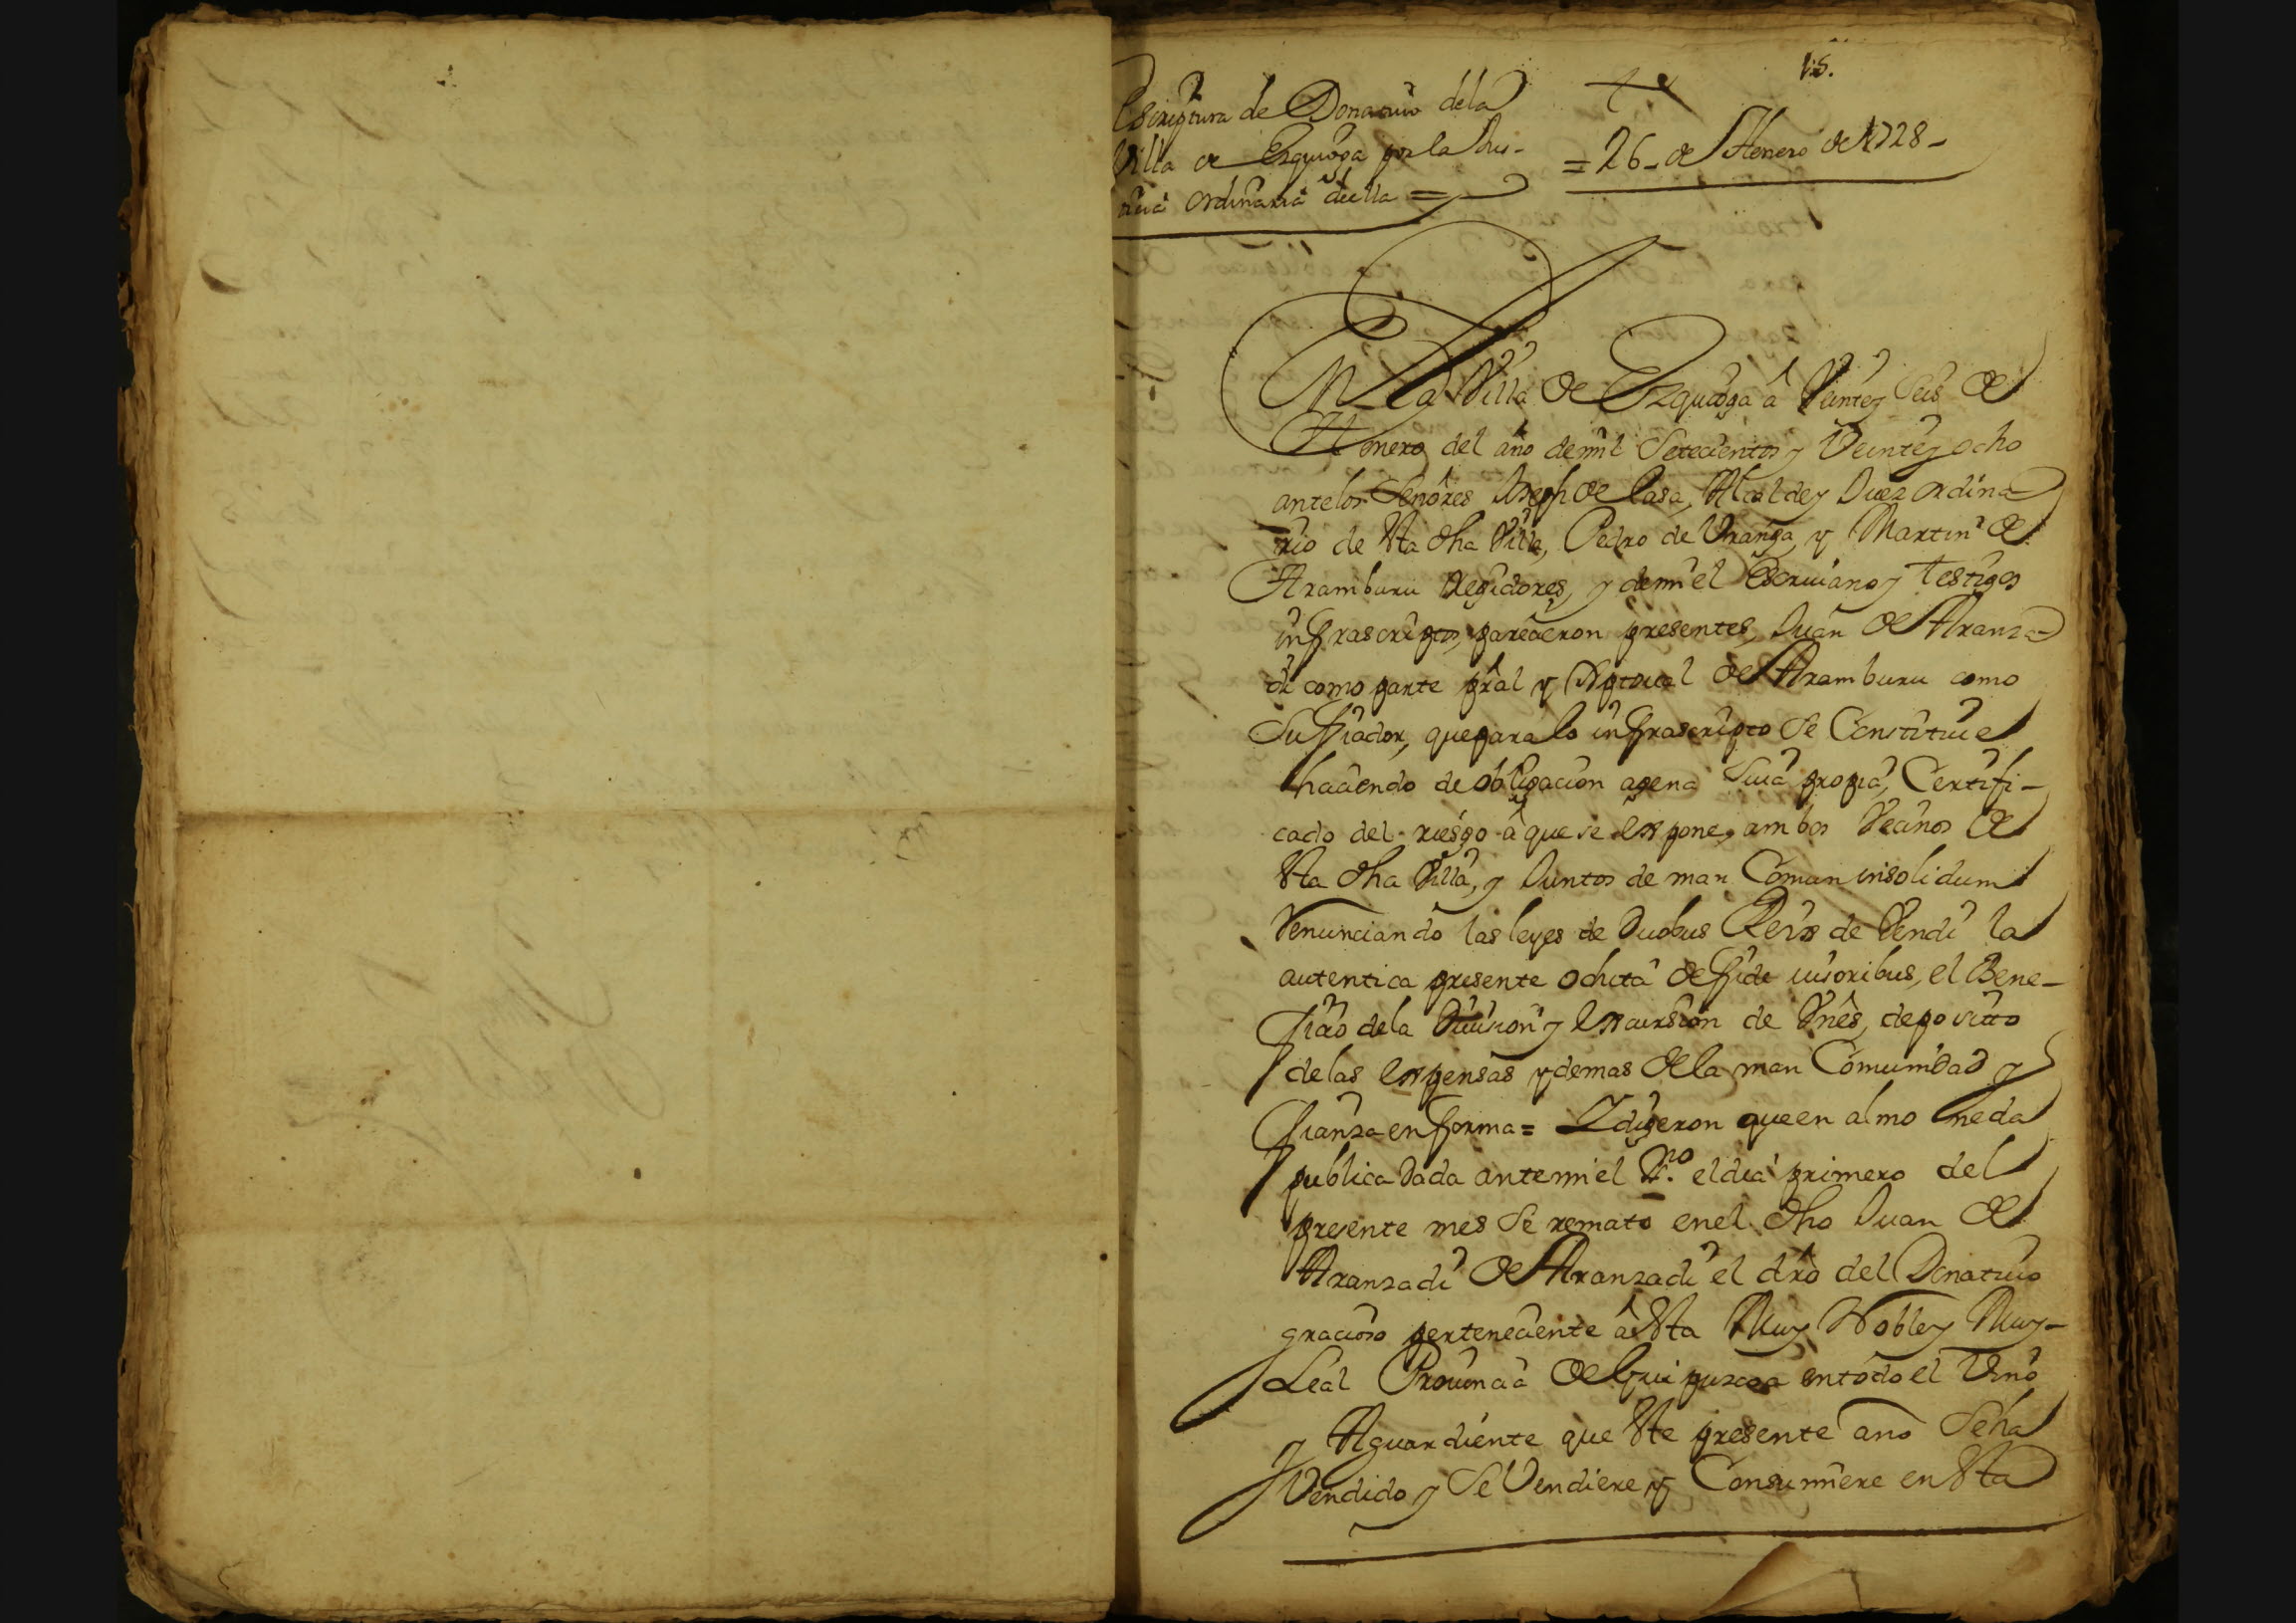 15.
Escriptura de Donatiuo dela
Villa de Ezquioga por la Jus-
ticia ordinaria de ella =
= 26 - de Henero de 1728 -
En La Villa de Ezquioga â Veinte y Seis de
Henero del año de mil Setecientos y Veinte y ocho
ante los Señores Joseph de Casa, Alcalde y Juez ordina
rio de esta dha Villa, Pedro de Vranga, y Martin de
Aramburu Regidores, y de mi el Escriuano y testigos
infrascriptos, parecieron presentes, Juan de Aranza
di como parte pral y Xptoual de Aramburu como
Su fiador, que para lo infrascripto Se Constituie
haciendo de obligacion agena Suia propia, Certifi-
cado del riesgo â que se expone, ambos Vecinos de
esta dha Villa, y Juntos de man Comun insolidum
Renunciando las leyes de Duobus Reis de Vendi la
autentica presente ochita de fide iusoribus, el Bene-
ficio dela Diuision y excursion de Vnês, deposito
delas expensas y demas dela man Comunidad y
fianza en forma = Y dijeron que en almoneda
publica dada ante mi el Sno. el dia primero del
presente mes Se remato en el dho Juan de
Aranzadi de Aranzadi el dro del Donatiuo
gracioso perteneciente â esta Muy Noble y Muy-
Leal Prouincia de Guipuzcoa en todo el Vino
y Aguardiente que este presente año Se ha
Vendido y Se Vendiere y Consumiere en esta